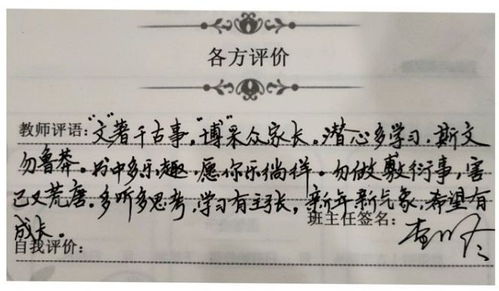 各方评价
教师评语:“文”著千古事，“博”采众家长。潜心多学习，斯文
勿鲁莽。书中多乐趣，愿你乐徜徉。勿做敷衍事，害
己又荒唐。多听多思考，学习有主张。新年新气象，希望有
成长。
班主任签名:
自我评价: